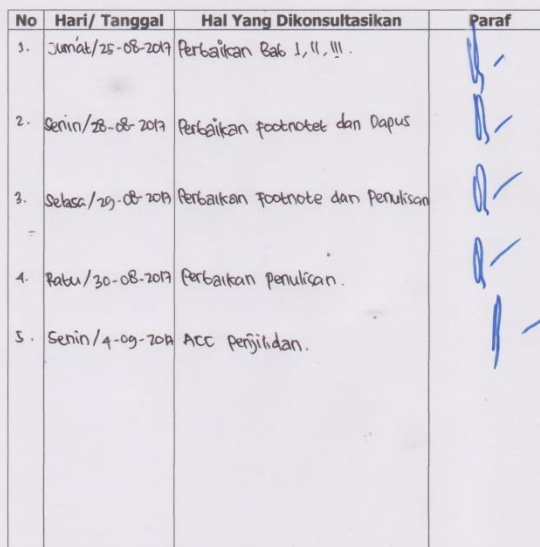 No Hari/ Tanggal Hal Yang Dikonsultasikan Paraf
1. Jum'at/25-08-2017 Perbaikan Bab I, II, III.
2. Senin/28-08-2017 Perbaikan Footnotet dan Dapus
3. Selasa/29-08-2017 Perbaikan Footnote dan Penulisan
4. Rabu/30-08-2017 Perbaikan penulisan.
5. Senin/4-09-2017 ACC Penjilidan.